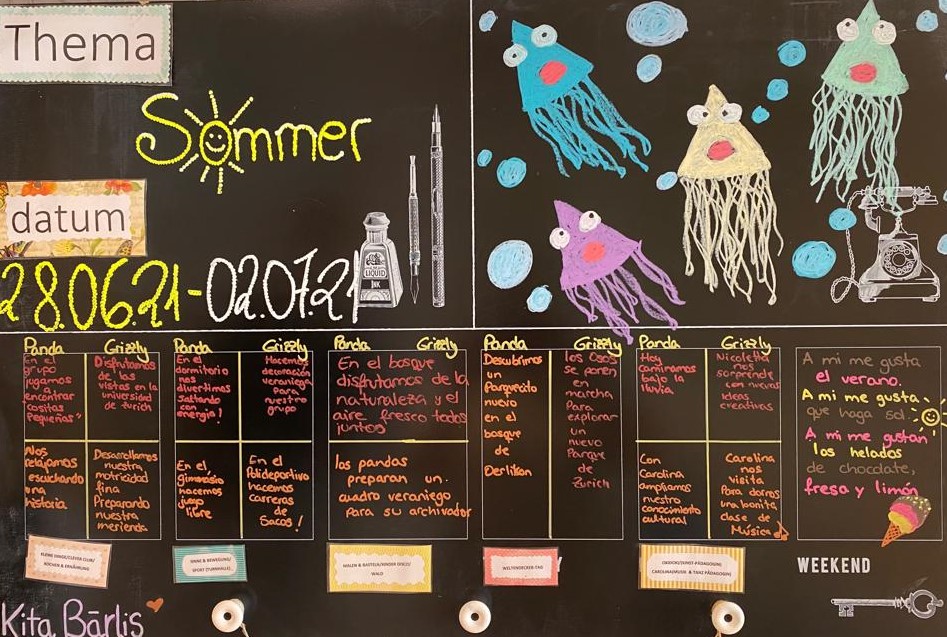 Thema
Sommer
datum
28.06.21-02.07.21
LIQUID
INK
Panda
Grizzly
En el
grupo
jugamos
a
encontrar
cositas
Pequeñas"
Disfrutamos
de las
vistas en la
universidad
de Zurich
Nos
relajamos
escuchando
una
historia
Desarrollamos
nuestra
motricidad
fina
Preparando
nuestra
merienda
Panda
Grizzly
En el
dormitorio
nos
divertimos
saltando
con
energia!
Hacemos
decoración
veraniega
Para
nuestro
grupo
En el
gimnasio
hacemos
juego
libre
En el
Polideportivo
hacemos
carreras
de
Sacos!
Panda
Grizzly
En el bosque
disfrutamos de la
naturaleza y el
aire fresco todos
juntos
los pandas
preparan un
cuadro veraniego
Para su archivador
Panda
Grizzly
Descubrimos
un
Parquecito
nuevo
en el
bosque
de
Oerlikon
los Osos
se ponen
en
marcha
Para
explorar
un
nuevo
Parque
de
Zurich
Panda
Grizzly
Hoy
caminamos
bajo la
lluvia
Nicoletta
nos
sorprende
con nuevas
ideas
creativas
Con
Carolina
ampliamos
nuestro
conocimiento
cultural
Carolina
nos
visita
Para darnos
una bonita
clase de
Música
A mi me gusta
el verano.
A mi me gusta
que haga sol.
A mi me gustan
los helados
de chocolate,
fresa y limón
KOCHEN & ERNÄHRUNG
SINNE & BEWEGUNG/
SPORT (TURNHALLE)
MALEN & BASTELN/KINDER DISCO/
WALD
WELTENTDECKER-TAG
CAROLINA(MUSIK & TANZ PÄDAGOGIN)
WEEKEND
Kita Bärlis